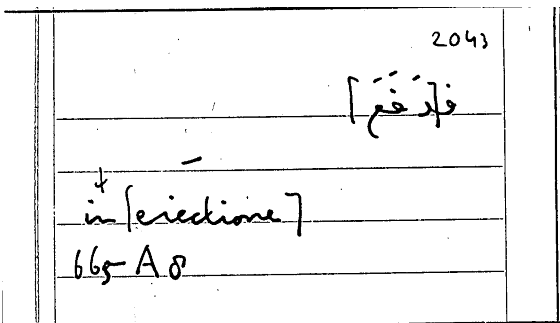 2043
ف[دَفَعَ]
in [eiectione]
665 A 8